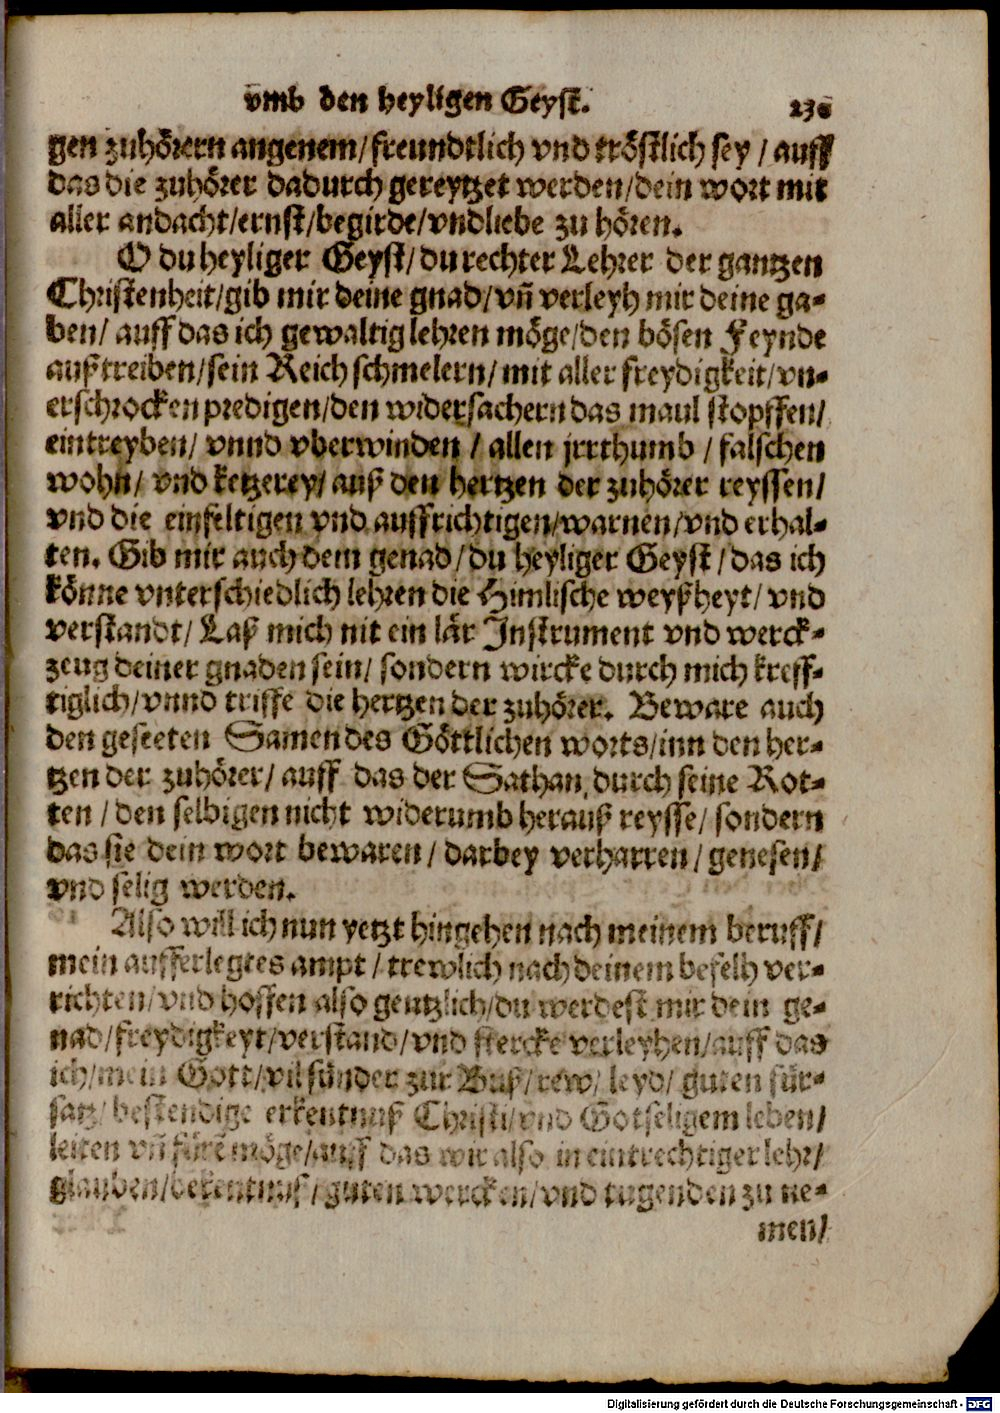 vmb den heyligen Geyst. 230
gen zuhörern angenem/freundtlich vnd tröstlich sey / auff
das die zuhörer dadurch gereytzet werden/dein wort mit
aller andacht/ernst/begirde/vnd liebe zu hören.
O du heyliger Geyst/du rechter Lehrer der gantzen
Christenheit/gib mir deine gnad/vñ verleyh mir deine ga-
ben/ auff das ich gewaltig lehren möge/den bösen Feynde
außtreiben/sein Reich schmelern/mit aller freydigkeit/vn-
erschrocken predigen/den widersachern das maul stopffen/
eintreyben/ vnnd vberwinden / allen jrrthumb / falschen
wohn/ vnd ketzerey/ auß den hertzen der zuhörer reyssen/
vnd die einfeltigen vnd auffrichtigen/warnen/vnd erhal-
ten. Gib mir auch dein genad/du heyliger Geyst/das ich
könne vnterschiedlich lehren die Himlische weyßheyt/ vnd
verstandt/ Laß mich nit ein lär Instrument vnd werck-
zeug deiner gnaden sein/ sondern wircke durch mich kreff-
tiglich/vnnd triffe die hertzen der zuhörer. Beware auch
den geseeten Samen des Göttlichen worts/inn den her-
tzen der zuhörer/ auff das der Sathan durch seine Rot-
ten / den selbigen nicht widerumb herauß reysse/ sondern
das sie dein wort bewaren/ darbey verharren/ genesen/
vnd selig werden.
Also will ich nun yetzt hingehen nach meinem beruff/
mein aufferlegtes ampt / trewlich nach deinem befelh ver-
richten/vnd hoffen also gentzlich/du werdest mir dein ge-
nad/freydigkeyt/verstand/vnd stercke verleyhen/auff das
ich/mein Gott/vil sünder zur Buß/rew/ leyd/ guten für-
satz/ bestendige erkentnuß Christi/vnd Gotseligem leben/
leiten vñ fürẽ möge/auff das wir also in eintrechtiger lehr/
glauben/bekentnus/guten wercken/vnd tugenden zu ne-
men/
Digitalisierung gefördert durch die Deutsche Forschungsgemeinschaft - DFG